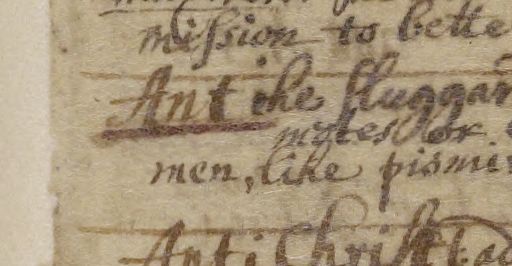 mission to bette
Ant the sluggar
or
men, like pismi
Anti Christ